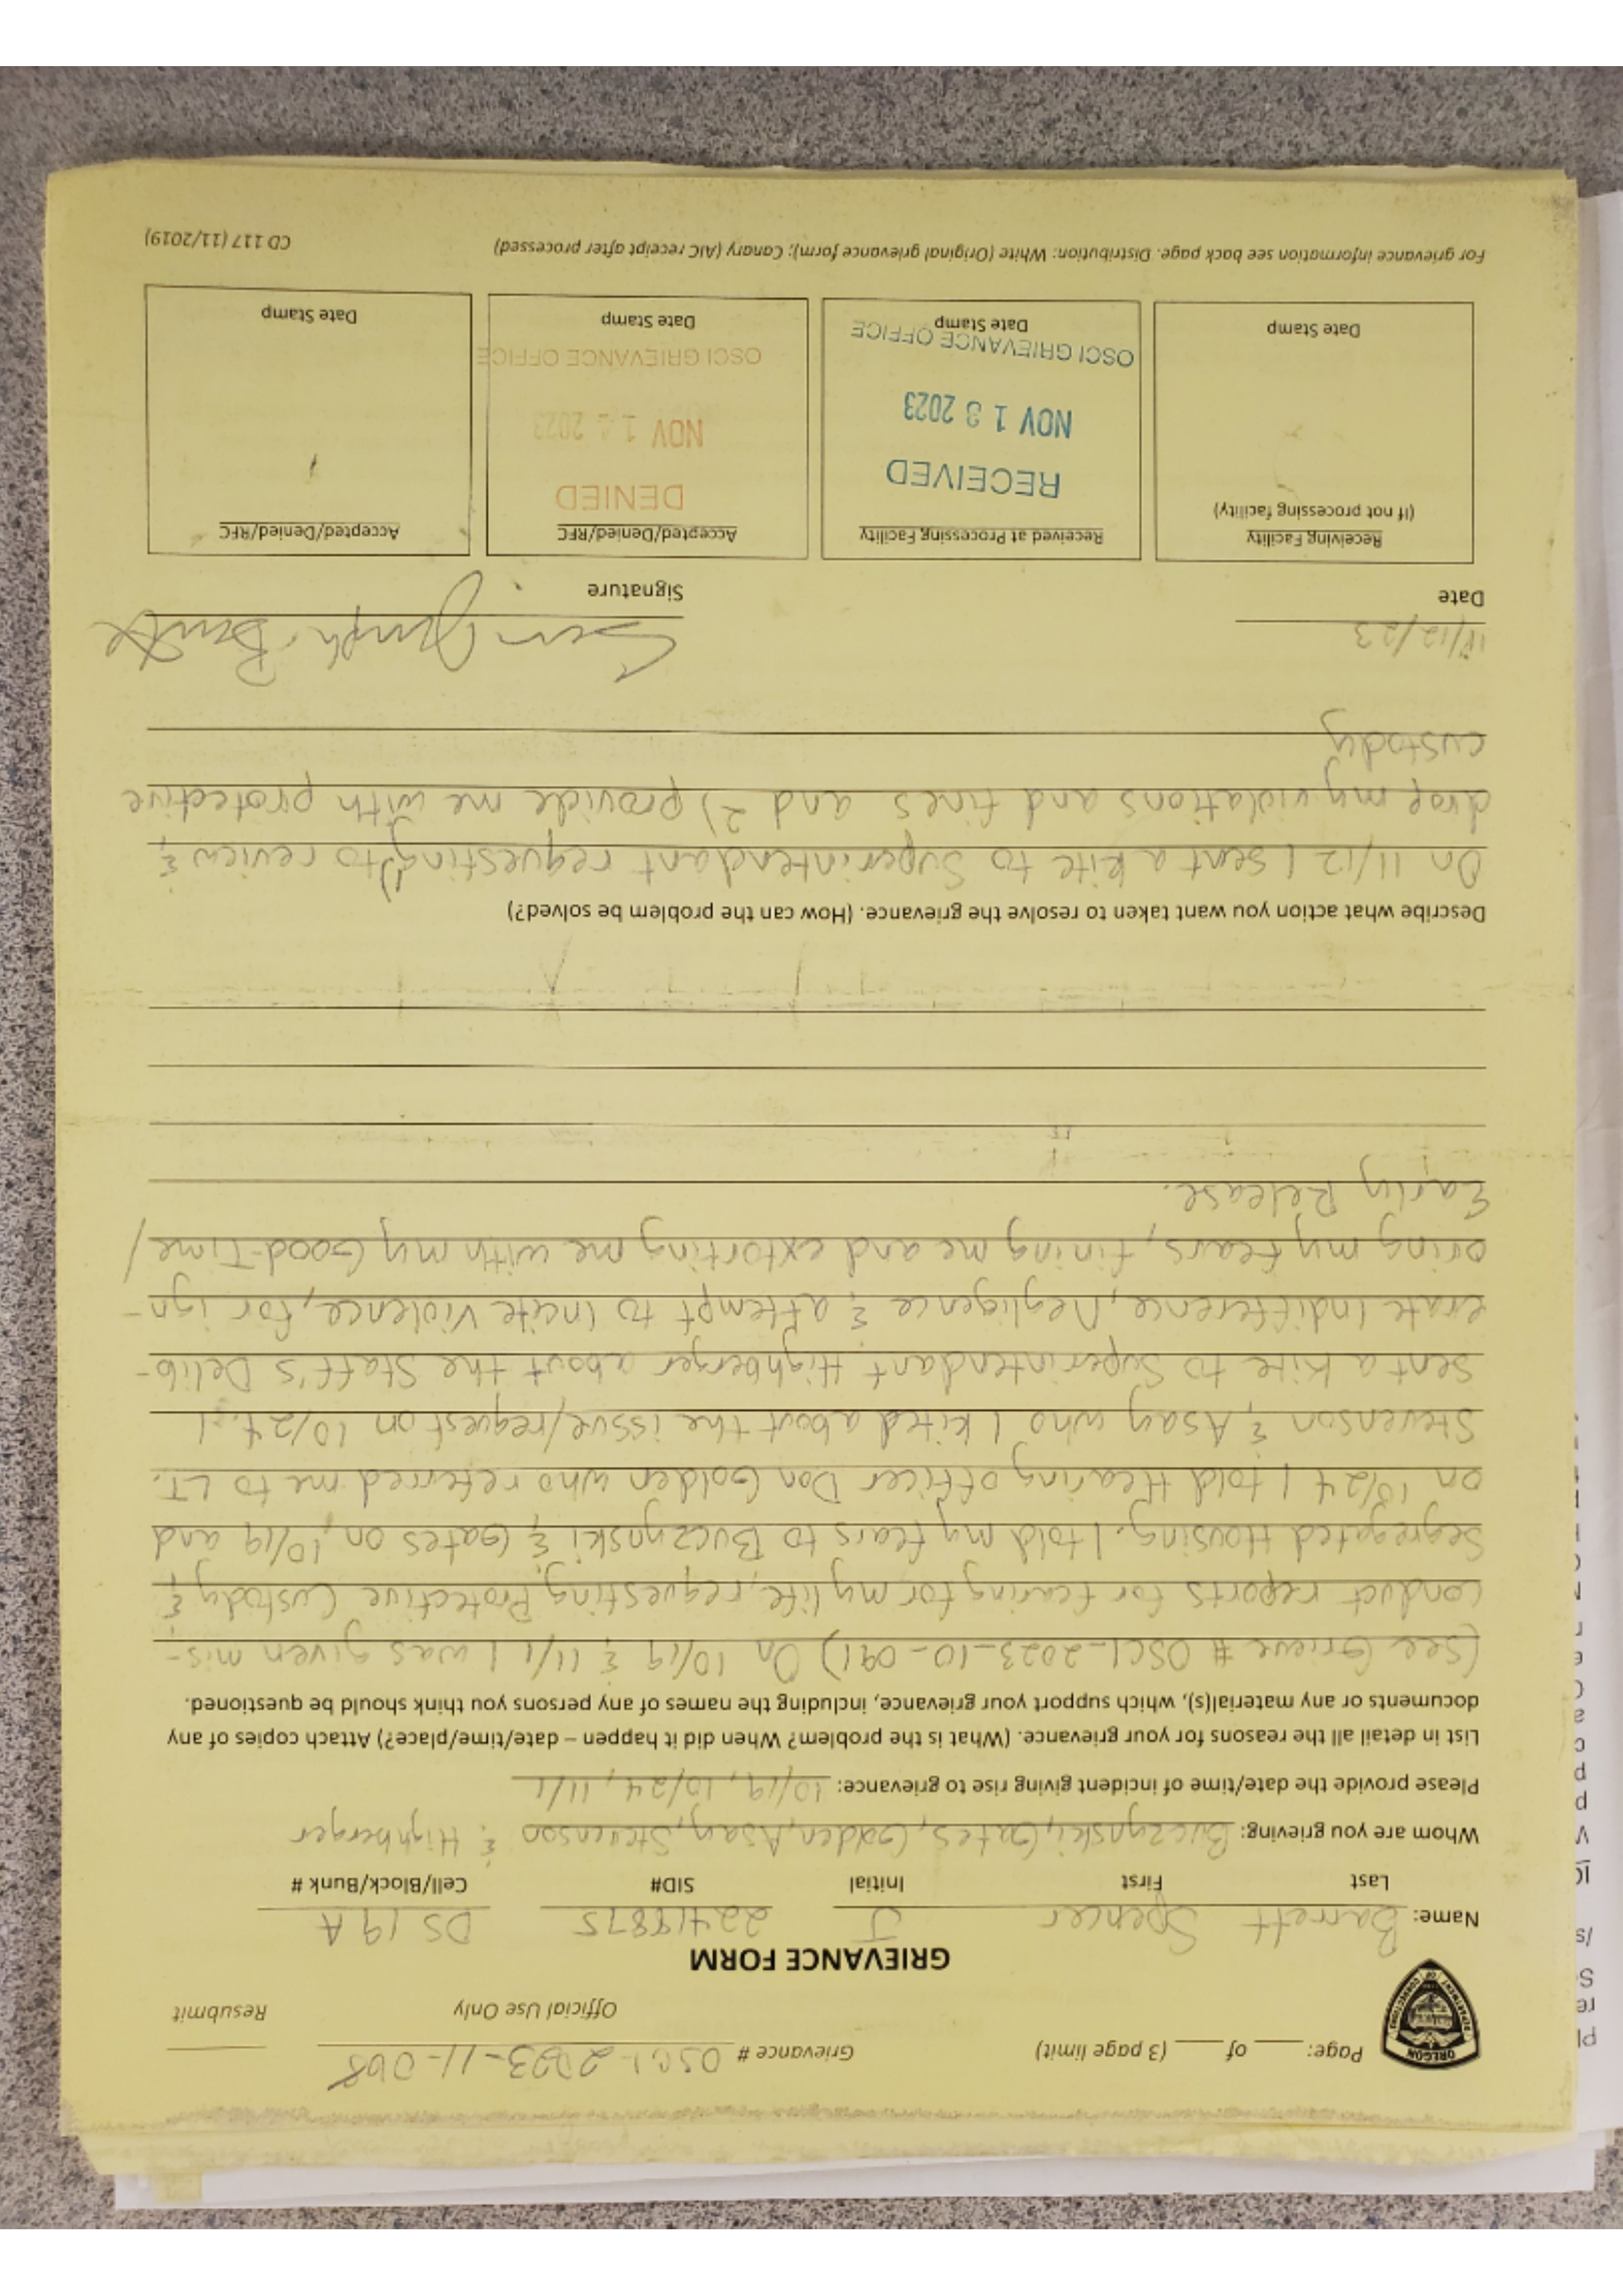 Page: ___ of ___ (3 page limit) Grievance # OSCI-2023-11-068
Official Use Only Resubmit
OREGON
DEPARTMENT OF CORRECTIONS
GRIEVANCE FORM
Name: Barrett Spencer J 22418875 DS 19 A
Last First Initial SID# Cell/Block/Bunk #
Whom are you grieving: Buczynski, Gates, Golden, Asay, Stevenson & Highberger
Please provide the date/time of incident giving rise to grievance: 10/19, 10/24, 11/1
List in detail all the reasons for your grievance. (What is the problem? When did it happen – date/time/place?) Attach copies of any
documents or any material(s), which support your grievance, including the names of any persons you think should be questioned.
(see Grieve # OSCI-2023-10-091) On 10/19 & 11/1 I was given mis-
conduct reports for fearing for my life, requesting Protective Custody &
Segregated Housing. I told my fears to Buczynski & Gates on 10/19 and
on 10/24 I told Hearing officer Don Golden who referred me to LT.
Stevenson & Asay who I kited about the issue/request on 10/24. I
sent a Kite to Superintendant Highberger about the Staff's Delib-
erate Indifference, Negligence & attempt to Incite Violence, for ign-
oring my fears, fining me and extorting me with my Good-Time/
Early Release.
Describe what action you want taken to resolve the grievance. (How can the problem be solved?)
On 11/12 I sent a kite to Superintendant requesting 1) to review &
drop my violations and fines and 2) provide me with protective
custody
11/12/23
Date Signature
Receiving Facility Received at Processing Facility Accepted/Denied/RFC Accepted/Denied/RFC
(If not processing facility)
RECEIVED DENIED
NOV 13 2023 NOV 14 2023
OSCI GRIEVANCE OFFICE OSCI GRIEVANCE OFFICE
Date Stamp Date Stamp Date Stamp Date Stamp
For grievance information see back page. Distribution: White (Original grievance form); Canary (AIC receipt after processed) CD 117 (11/2019)